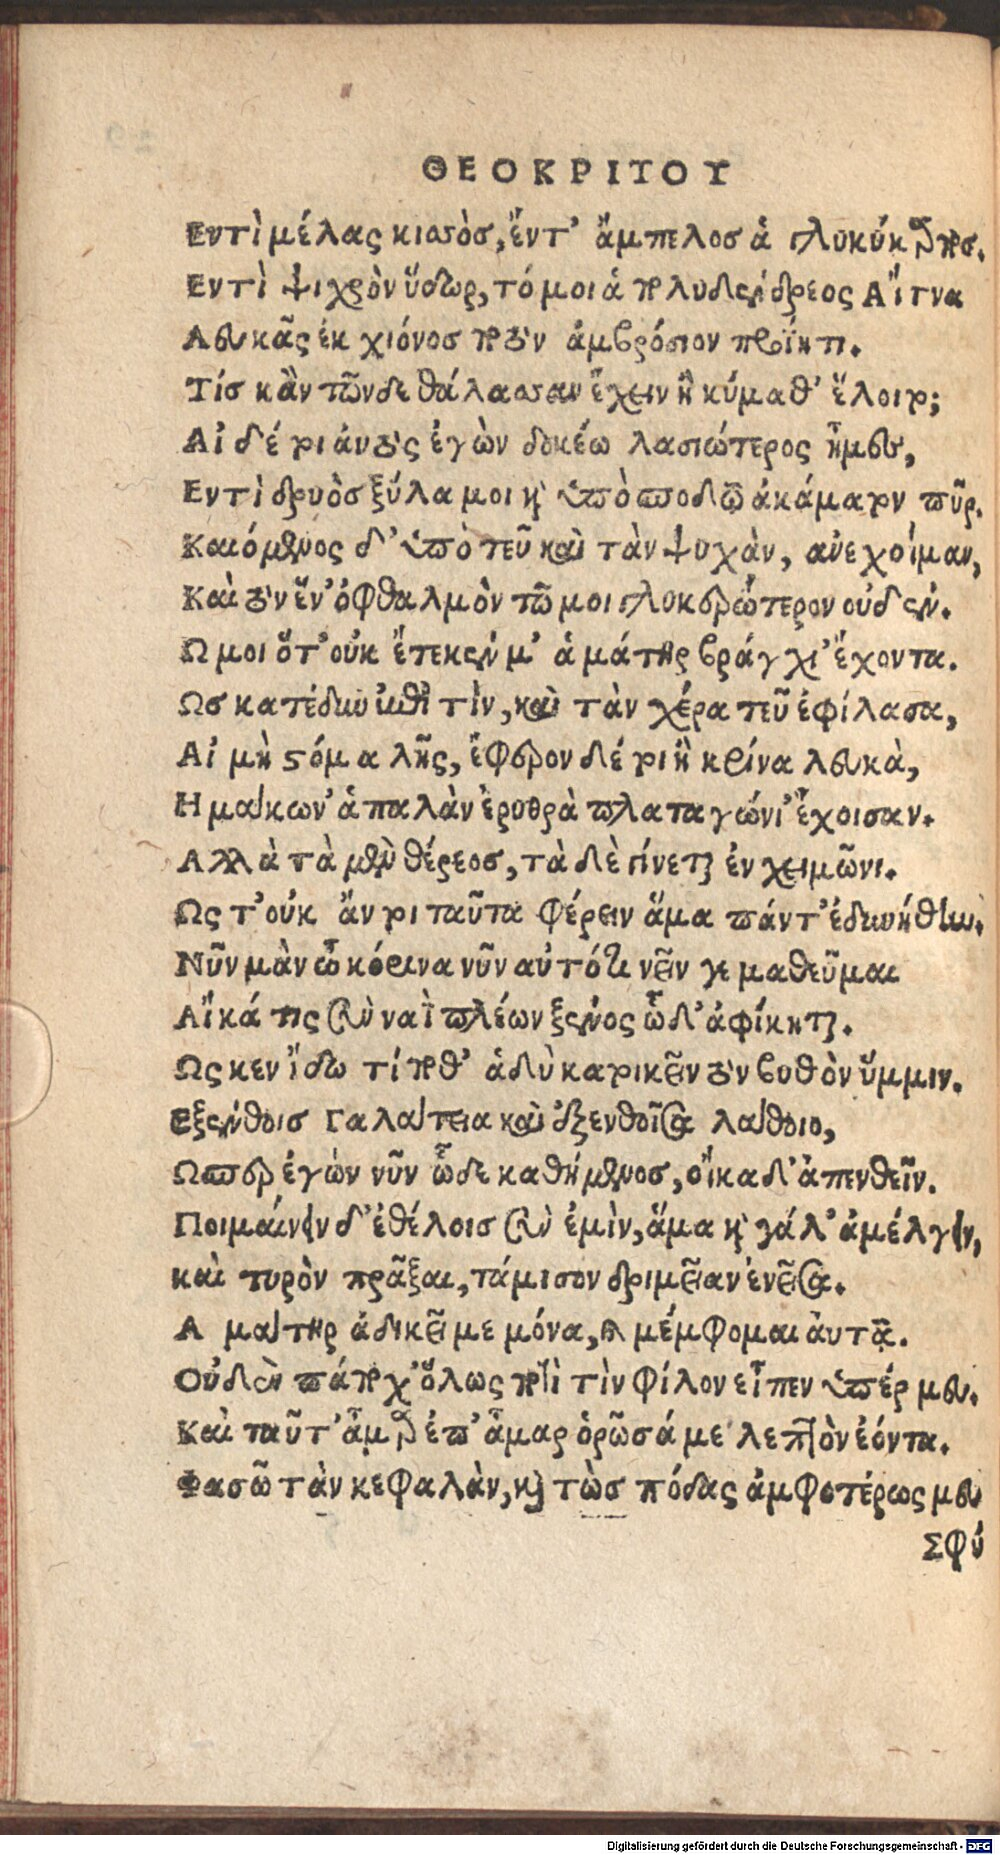 ΘΕΟΚΡΙΤΟΥ
Εντὶ μέλας κισσὸσ, ἔντ' ἄμπελοσ ἁ γλυκύκαρποσ.
Εντὶ ψυχρὸν ὕδωρ, τό μοι ἁ πολυδένδρεος Αἴτνα
Λευκᾶς ἐκ χιόνοσ ποτὸν ἀμβρόσιον προΐητι.
Τίσ κὰν τῶνδε θάλασσαν ἔχειν ἢ κύμαθ' ἕλοιτο;
Αἰ δέ τοι ἀυτὸς ἐγὼν δοκέω λασιώτερος ἦμεν,
Εντὶ δρυὸσ ξύλα μοι καὶ ὑπὸ σποδῶ ἀκάματον πῦρ.
Καιόμενος δ' ὑπὸ τεῦ καὶ τὰν ψυχὰν, ἀνεχοίμαν,
Καὶ τὸν ἕν' ὀφθαλμὸν τῶ μοι γλυκερώτερον οὐδέν.
Ωμοι ὅτ' οὐκ ἔτεκέν μ' ἁ μάτηρ βράγχι' ἔχοντα.
Ωσ κατέδυν ποτὶ τὶν, καὶ τὰν χέρα τεῦ ἐφίλασα,
Αἰ μὴ στόμα λῇς, ἔφερον δέ τοι ἢ κρίνα λευκὰ,
Η μακων' ἁπαλὰν ἐρυθρὰ πλαταγώνι' ἔχοισαν.
Αλλὰ τὰ μὲν θέρεοσ, τὰ δὲ γίνεται ἐν χειμῶνι.
Ως τ' οὐκ ἄν τοι ταῦτα φέρειν ἅμα πάντ' ἐδυνήθην.
Νῦν μὰν ὦ κόρινα νῦν αὐτόθι νεῖν γε μαθεῦμαι
Αἴκά τις σὺν ναῒ πλέων ξένος ὧδ' ἀφίκηται.
Ως κεν ἴδω τί ποθ' ἁδὺ κατοικεῖν τὸν βυθὸν ὔμμιν.
Εξένθοισ Γαλάτεια καὶ ἐξενθοῖσα λάθοιο,
Ωσπερ ἐγὼν νῦν ὧδε καθήμενοσ, οἴκαδ' ἀπενθεῖν.
Ποιμαίνειν δ' ἐθέλοισ σὺν ἐμὶν, ἅμα καὶ γάλ' ἀμέλγειν,
καὶ τυρὸν πρᾶξαι, τάμισον δριμεῖαν ἐνεῖσα.
Α μάτηρ ἀδικεῖ με μόνα, καὶ μέμφομαι ἀυτᾷ.
Οὐδὲν πάποχ' ὅλως ποτὶ τὶν φίλον εἶπεν ὑπέρ μευ.
Καὶ ταῦτ' ἆμαρ ἐπ' ἆμαρ ὁρῶσά με λεπτὸν ἐόντα.
Φασῶ τὰν κεφαλὰν, καὶ τὼσ πόδας ἀμφοτέρως μευ
Σφύ
Digitalisierung gefördert durch die Deutsche Forschungsgemeinschaft - DFG